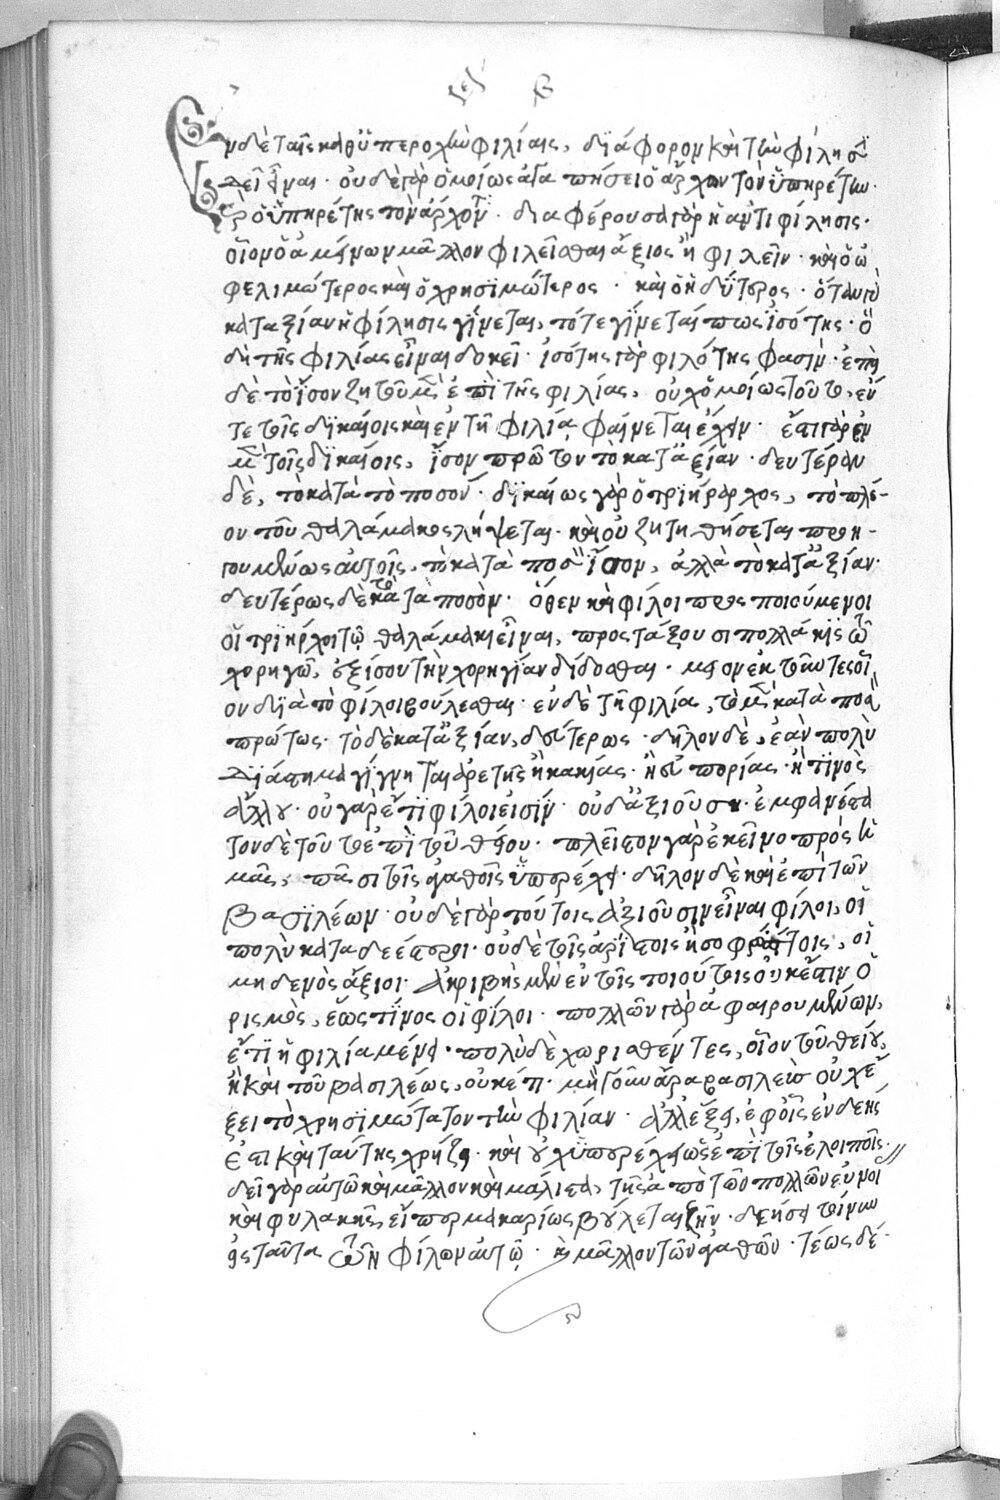 Ἐν δὲ ταῖς καθ' ὑπεροχὴν φιλίαις, διάφορον καὶ τὴν φίλησιν
δεῖ εἶναι· οὐδὲ γὰρ ὁμοίως ἀγαπήσει ὁ ἄρχων τὸν ὑπηρέτην·
ὁ ὑπηρέτης τὸν ἄρχοντα· διαφέρουσα γὰρ ἡ ἀντιφίλησις·
οἷον ὁ ἀμείνων μᾶλλον φιλεῖσθαι ἄξιος ἢ φιλεῖν· καὶ ὁ ὠ
φελιμώτερος καὶ ὁ χρησιμώτερος· καὶ ὅταν
κατ' ἀξίαν ἡ φίλησις γίνεται, τότε γίνεταί πως ἰσότης· ὃ
δὴ τῆς φιλίας εἶναι δοκεῖ· ἰσότης γὰρ φιλότης φασίν· ἐπεὶ
δὲ τὸ ἴσον ζητοῦμεν ἐπὶ τῆς φιλίας, οὐχ ὁμοίως τοῦτο, ἔν
τε τοῖς δικαίοις καὶ ἐν τῇ φιλίᾳ φαίνεται ἔχειν· ἔστι γὰρ ἐν
μὲν τοῖς δικαίοις, ἴσον πρῶτον τὸ κατ' ἀξίαν· δευτέρον
δὲ, τὸ κατὰ τὸ ποσόν· δικαίως γὰρ ὁ τριήραρχος, τὸ πλέ-
ον τοῦ θαλάμακος λήψεται· καὶ οὐ ζητηθήσεται προη-
γουμένως αὐτοῖς, τὸ κατὰ ποσὸν ἴσον, ἀλλὰ τὸ κατ' ἀξίαν·
δευτέρως δὲ τὸ κατὰ ποσόν· ὅθεν καὶ φίλοι πρὸς ποιούμενοι
οἱ τριήρχοι τῷ θαλάμακι εἶναι, προστάξουσι πολλάκις τῷ
χορηγῷ, ἐξίσου τὴν χορηγίαν δίδοσθαι· μεῖον ἐκ
ον διὰ τὸ φίλοι βούλεσθαι· ἐν δὲ τῇ φιλίᾳ, τὸ μὲν κατὰ ποσὸν
πρώτως· τὸ δὲ κατ' ἀξίαν, δευτέρως· δῆλον δὲ, ἐὰν πολὺ
διάστημα γίγνηται ἀρετῆς ἢ κακίας· ἢ εὐπορίας· ἤ τινος
ἄλλου· οὐ γὰρ ἔτι φίλοι εἰσίν· οὐδ' ἀξιοῦσιν· ἐμφανέστα
τον δὲ τοῦτο ἐπὶ τοῦ θείου· πλεῖστον γὰρ ἐκεῖνο πρὸς ἡ
μᾶς, πᾶσι τοῖς ἀγαθοῖς ὑπερέχει· δῆλον δὲ καὶ ἐπὶ τῶν
βασιλέων· οὐδὲ γὰρ τούτοις ἀξιοῦσιν εἶναι φίλοι, οἱ
πολὺ καταδεέστεροι· οὐδὲ τοῖς ἀρίστοις ἢ σοφωτάτοις, οἱ
μηδενὸς ἄξιοι· ἀκριβὴς μὲν ἐν τοῖς τοιούτοις οὐκ ἔστιν ὁ
ρισμὸς, ἕως τίνος οἱ φίλοι· πολλῶν γὰρ ἀφαιρουμένων,
ἔτι ἡ φιλία μένει· πολὺ δὲ χωρισθέντες, οἷον τοῦ θείου,
ἢ καὶ τοῦ βασιλέως, οὐκέτι· μὴ γοῦν ἄρα βασιλεὺς οὐχ ἕ
ξει τὸ χρησιμώτατον τὴν φιλίαν· ἀλλ' ἕξει, ἐφ' οἷς ἐνδεής
ἐστι καὶ ταύτης χρῄζει· καὶ οὐχ ὑπερέχει ὡς ἐπὶ τοῖς λοιποῖς·
δεῖ γὰρ αὐτῷ καὶ μᾶλλον καὶ μάλιστα, τῆς ἀπὸ τῶν πολλῶν εὐνοι
καὶ φυλακῆς, εἴπερ μακαρίως βούλεται ζῆν· δεήσει τοίνυν
εἰς ταῦτα τῶν φίλων αὐτῷ· καὶ μᾶλλον τῶν ἀγαθῶν· τέως δέ·